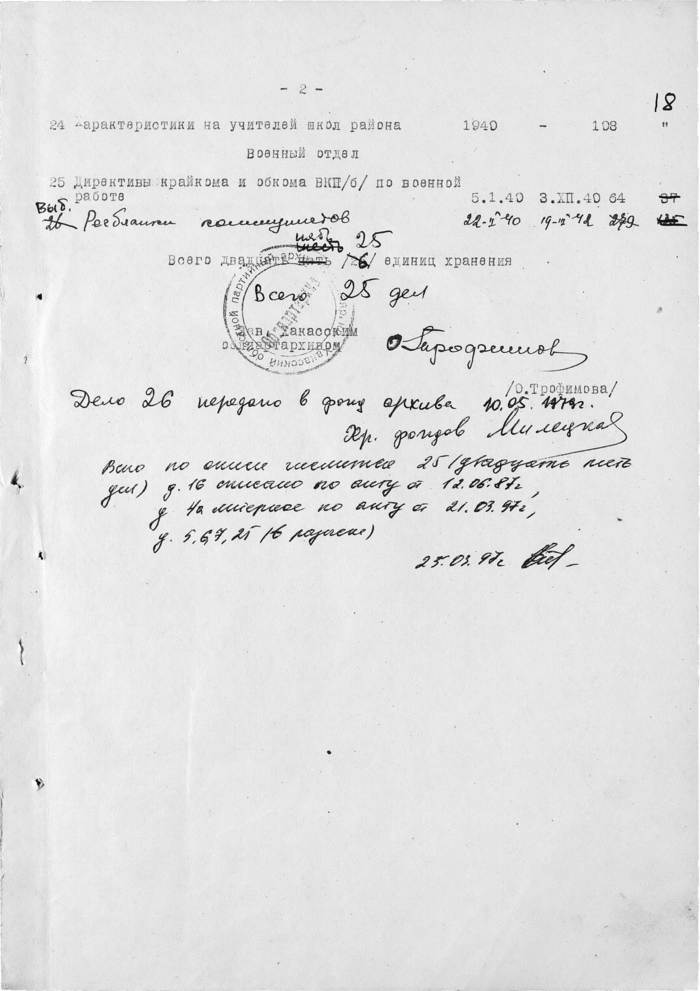 - 2 -
18
24 Характеристики на учителей школ района 1940 - 108 "
Военный отдел
25 Директивы крайкома и обкома ВКП/б/ по военной
работе 5.1.40 3.XП.40 64 37
Выб.
26 Регбланки коммунистов 279
пять 25
Всего двадцать шесть /26/ единиц хранения
Всего 25 дел
Зав. Хакасским
облпартархивом
/О.Трофимова/
Дело 26 передано в фонд архива 10.05.1979г.
Хр. фондов Милецкая
Всего по описи числится 25 (двадцать пять
дел) д. 16 списано по акту от 12.06.87г,
д 4а литерное по акту от 21.03.97г,
д. 5,6,7,25 (в розыске)
25.03.97г